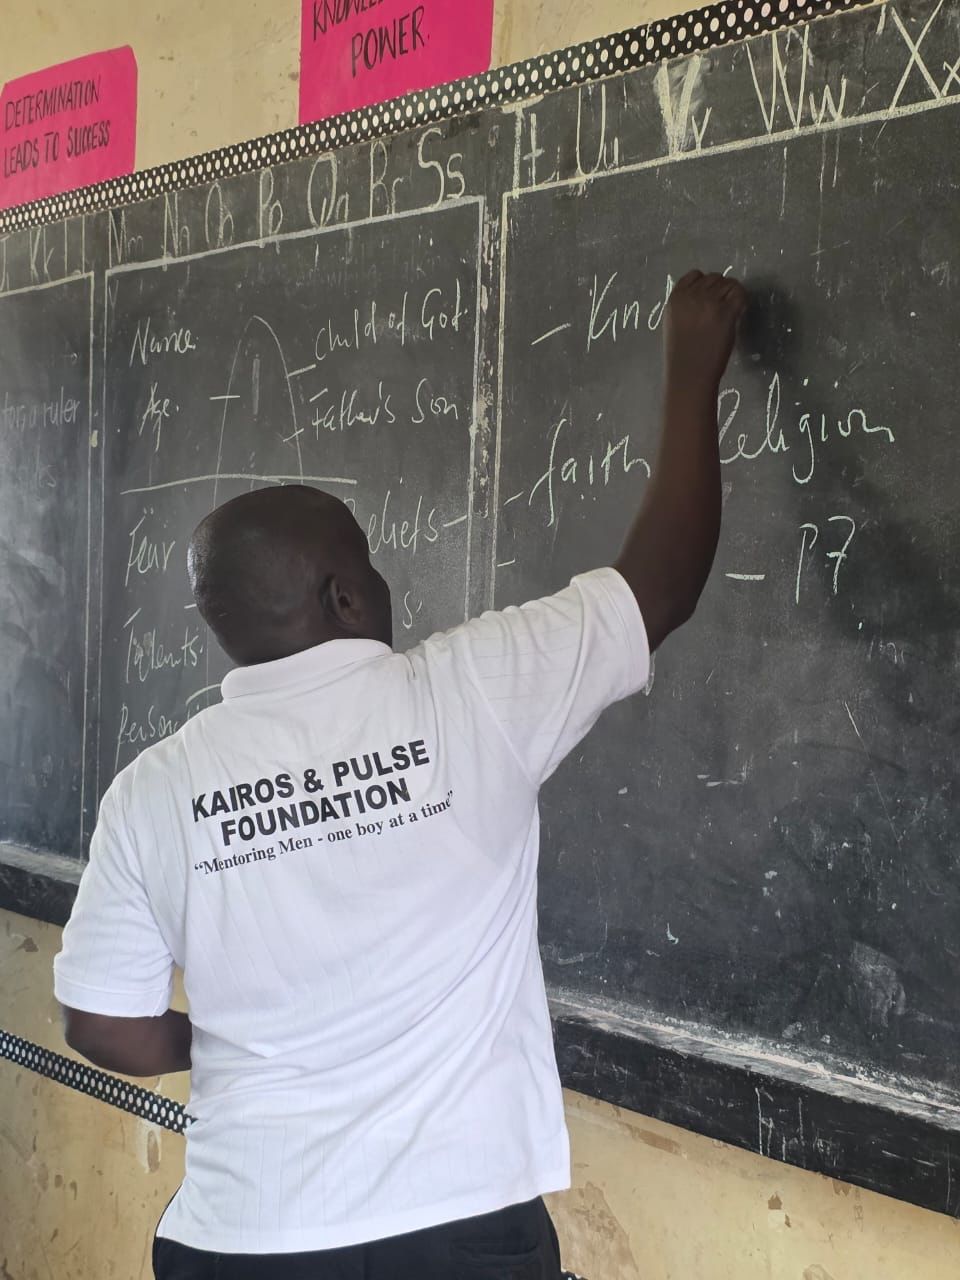 KNOWLEDGE
POWER.
DETERMINATION
LEADS TO SUCCESS
Kk Ll Mm Nn Oo Pp Qq Rr Ss Tt Uu Vv Ww Xx
Name.
Age.
Child of God.
Father's Son
Fear
Beliefs
Talents.
- Kind
- faith Religion
- P7
KAIROS & PULSE
FOUNDATION
"Mentoring Men - one boy at a time"